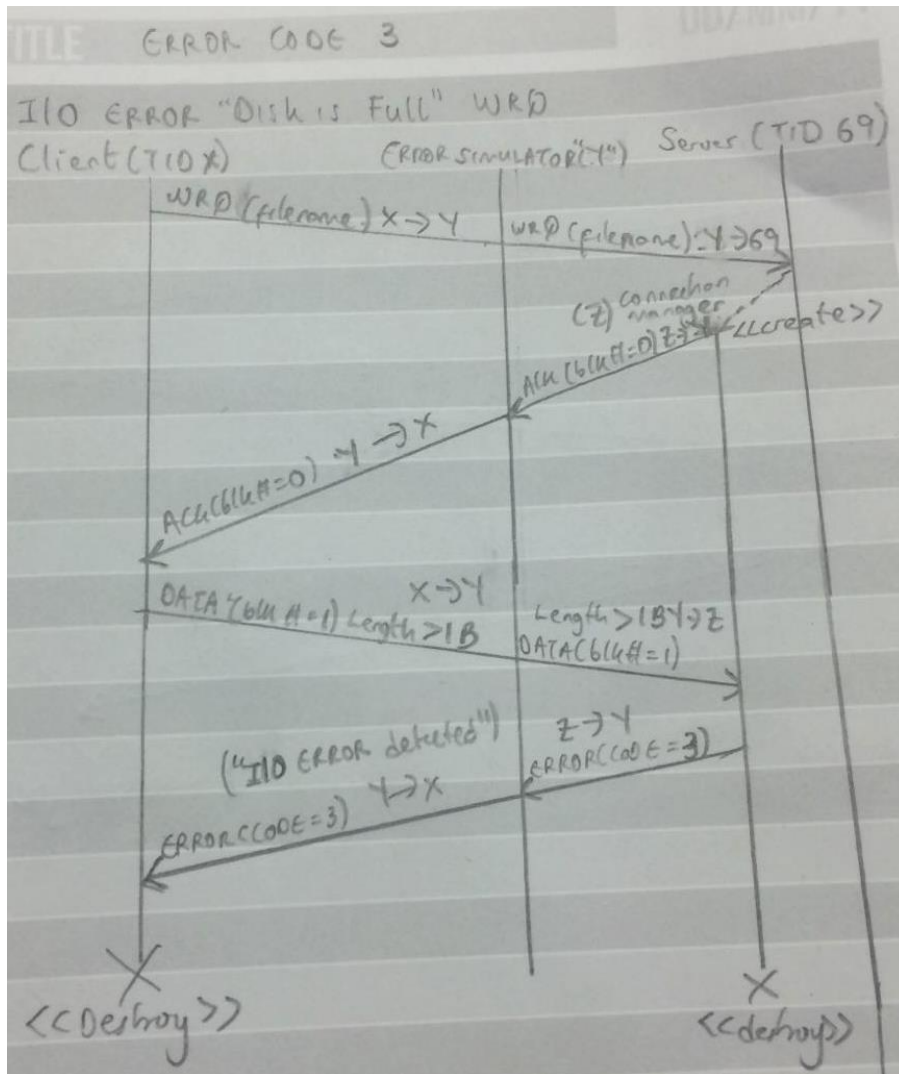 TITLE ERROR CODE 3
I/O ERROR "Disk is Full" WRQ
Client (TID X) ERROR SIMULATOR("Y") Server (TID 69)
WRQ (filename) X → Y
WRQ (filename) Y → 69
(Z) Connection
manager
<<create>>
ACK (blk#=0) Z → Y
ACK (blk#=0) Y → X
X → Y
DATA (blk #=1) Length > 1B
Length > 1B Y → Z
DATA (blk#=1)
Z → Y
ERROR (CODE = 3)
("I/O ERROR detected")
Y → X
ERROR (CODE = 3)
X X
<<Destroy>> <<destroy>>